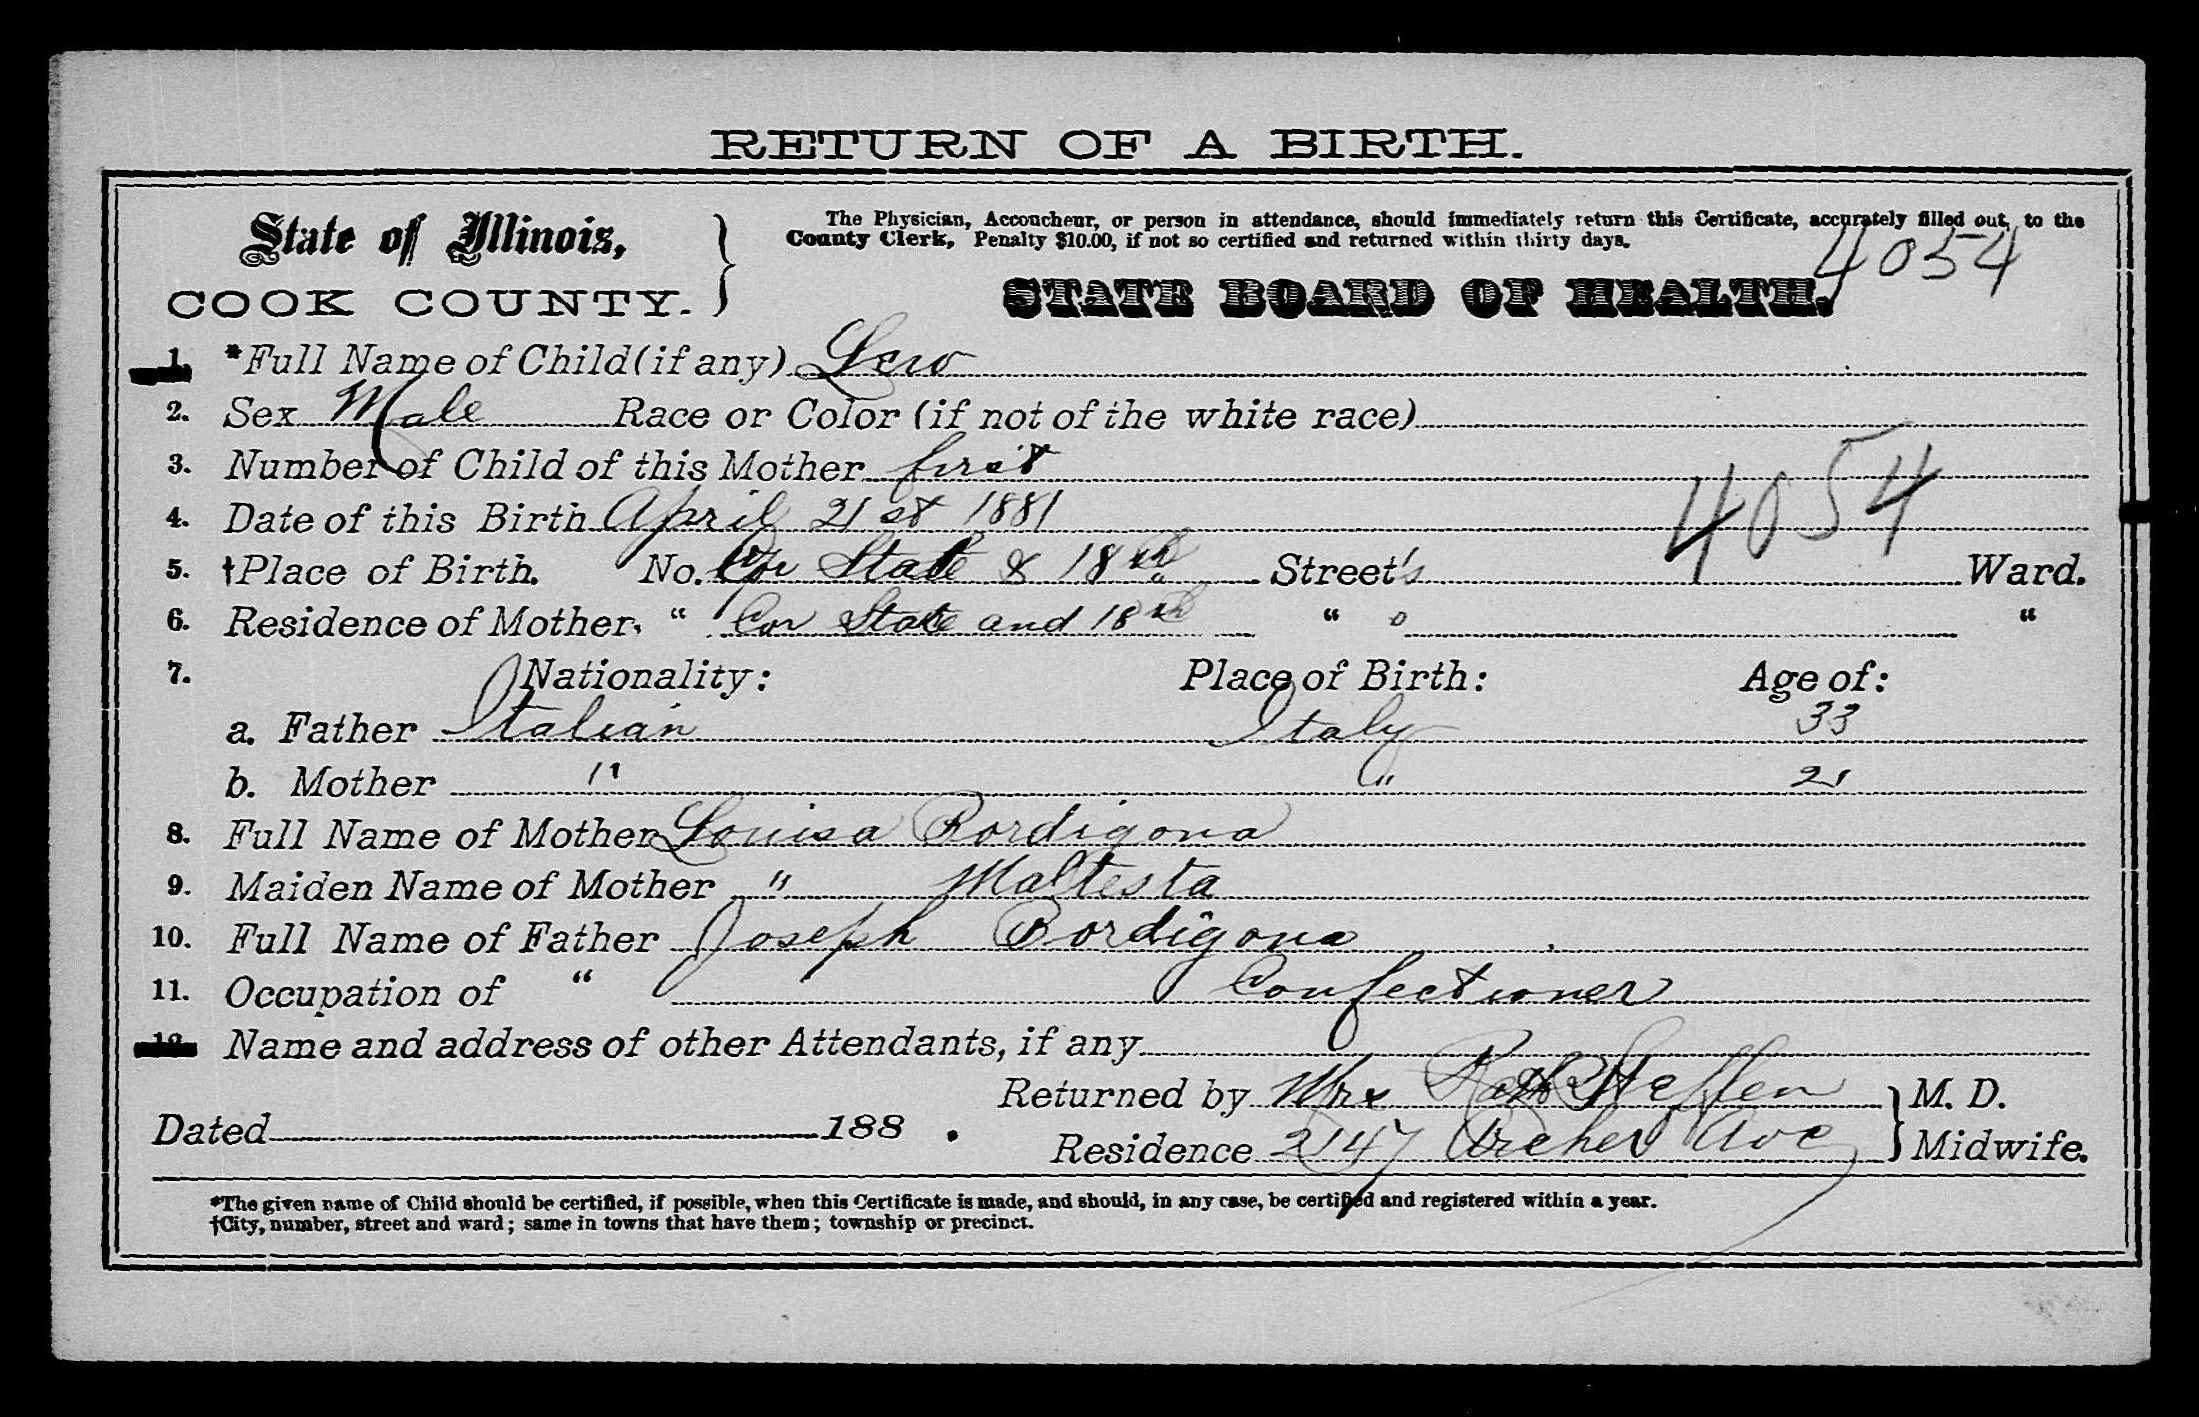 RETURN OF A BIRTH.
State of Illinois,
COOK COUNTY.
The Physician, Accoucheur, or person in attendance, should immediately return this Certificate, accurately filled out, to the
County Clerk, Penalty $10.00, if not so certified and returned within thirty days.
4054
STATE BOARD OF HEALTH.
1. *Full Name of Child (if any) Leio
2. Sex Male Race or Color (if not of the white race)
3. Number of Child of this Mother first
4. Date of this Birth April 21st 1881
4054
5. †Place of Birth. No. Cor State & 18th Street's Ward.
6. Residence of Mother, " Cor State and 18th " "
7. Nationality: Place of Birth: Age of:
a. Father Italian Italy 33
b. Mother " " 21
8. Full Name of Mother Louisa Bordigona
9. Maiden Name of Mother " Maltesta
10. Full Name of Father Joseph Bordigona
11. Occupation of " Confectioner
12. Name and address of other Attendants, if any
Returned by Mrs Steffen M. D.
Dated 188 .
Residence 2147 Archer Ave Midwife.
*The given name of Child should be certified, if possible, when this Certificate is made, and should, in any case, be certified and registered within a year.
†City, number, street and ward; same in towns that have them; township or precinct.